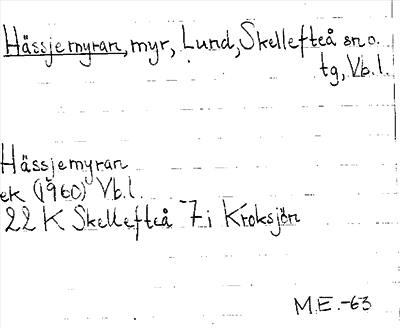 Hässjemyran, myr, Lund, Skellefteå sn o.
tg, Vb. l.
Hässjemyran
ek (1960) Vb. l.
22 K Skellefteå 7 i Kroksjön
M.E.-63